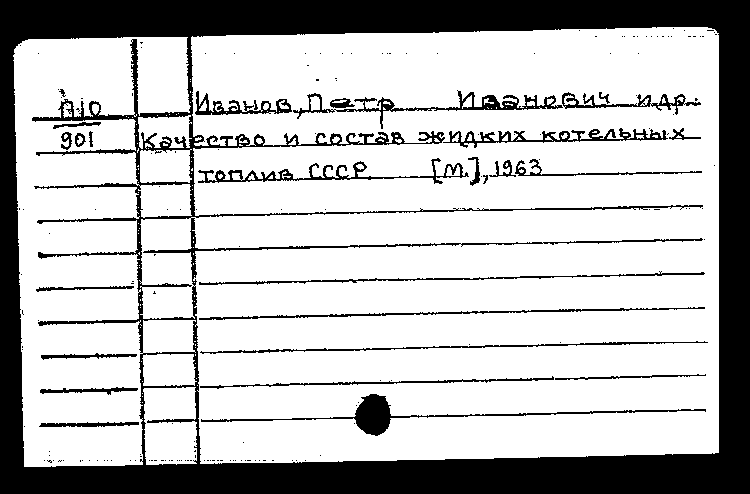 П10 Иванов, Петр Иванович и др.
901 Качество и состав жидких котельных
топлив СССР [М.], 1963